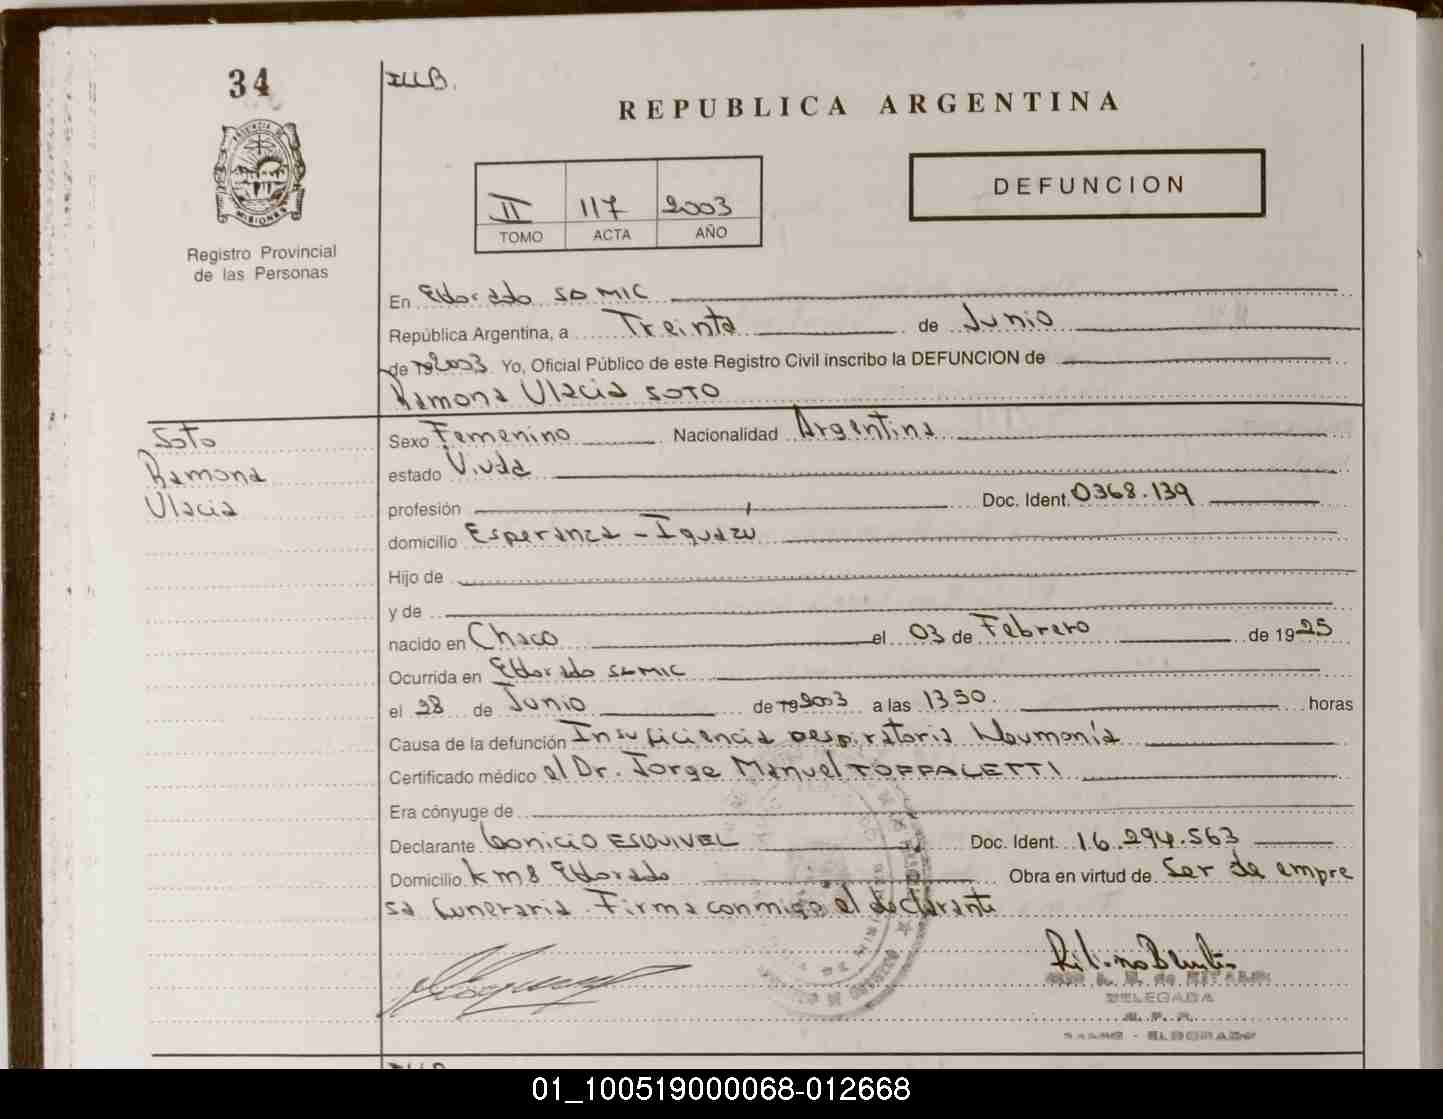 34
ILLB.
REPUBLICA ARGENTINA
PROVINCIA DE
MISIONES
Registro Provincial
de las Personas
DEFUNCION
II 117 2003
TOMO ACTA AÑO
En Eldorado SAMIC
República Argentina, a Treinta de Junio
de 19 2003 Yo, Oficial Público de este Registro Civil inscribo la DEFUNCION de
Ramona Ulacia SOTO
Soto
Ramona
Ulacia
Sexo Femenino Nacionalidad Argentina
estado Viuda
profesión Doc. Ident. 0368.139
domicilio Esperanza - Iguazú
Hijo de
y de
nacido en Chaco el 03 de Febrero de 1925
Ocurrida en Eldorado SAMIC
el 28 de Junio de 19 2003 a las 13 50. horas
Causa de la defunción Insuficiencia respiratoria Neumonía
Certificado médico el Dr. Jorge Manuel TOFFALETTI
Era cónyuge de
Declarante ESQUIVEL Doc. Ident. 16.294.563
Domicilio km 8 Eldorado Obra en virtud de Ser de empre
sa funeraria. Firma conmigo el declarante
DELEGADA
R. P. P.
SAMIC - ELDORADO
01_100519000068-012668